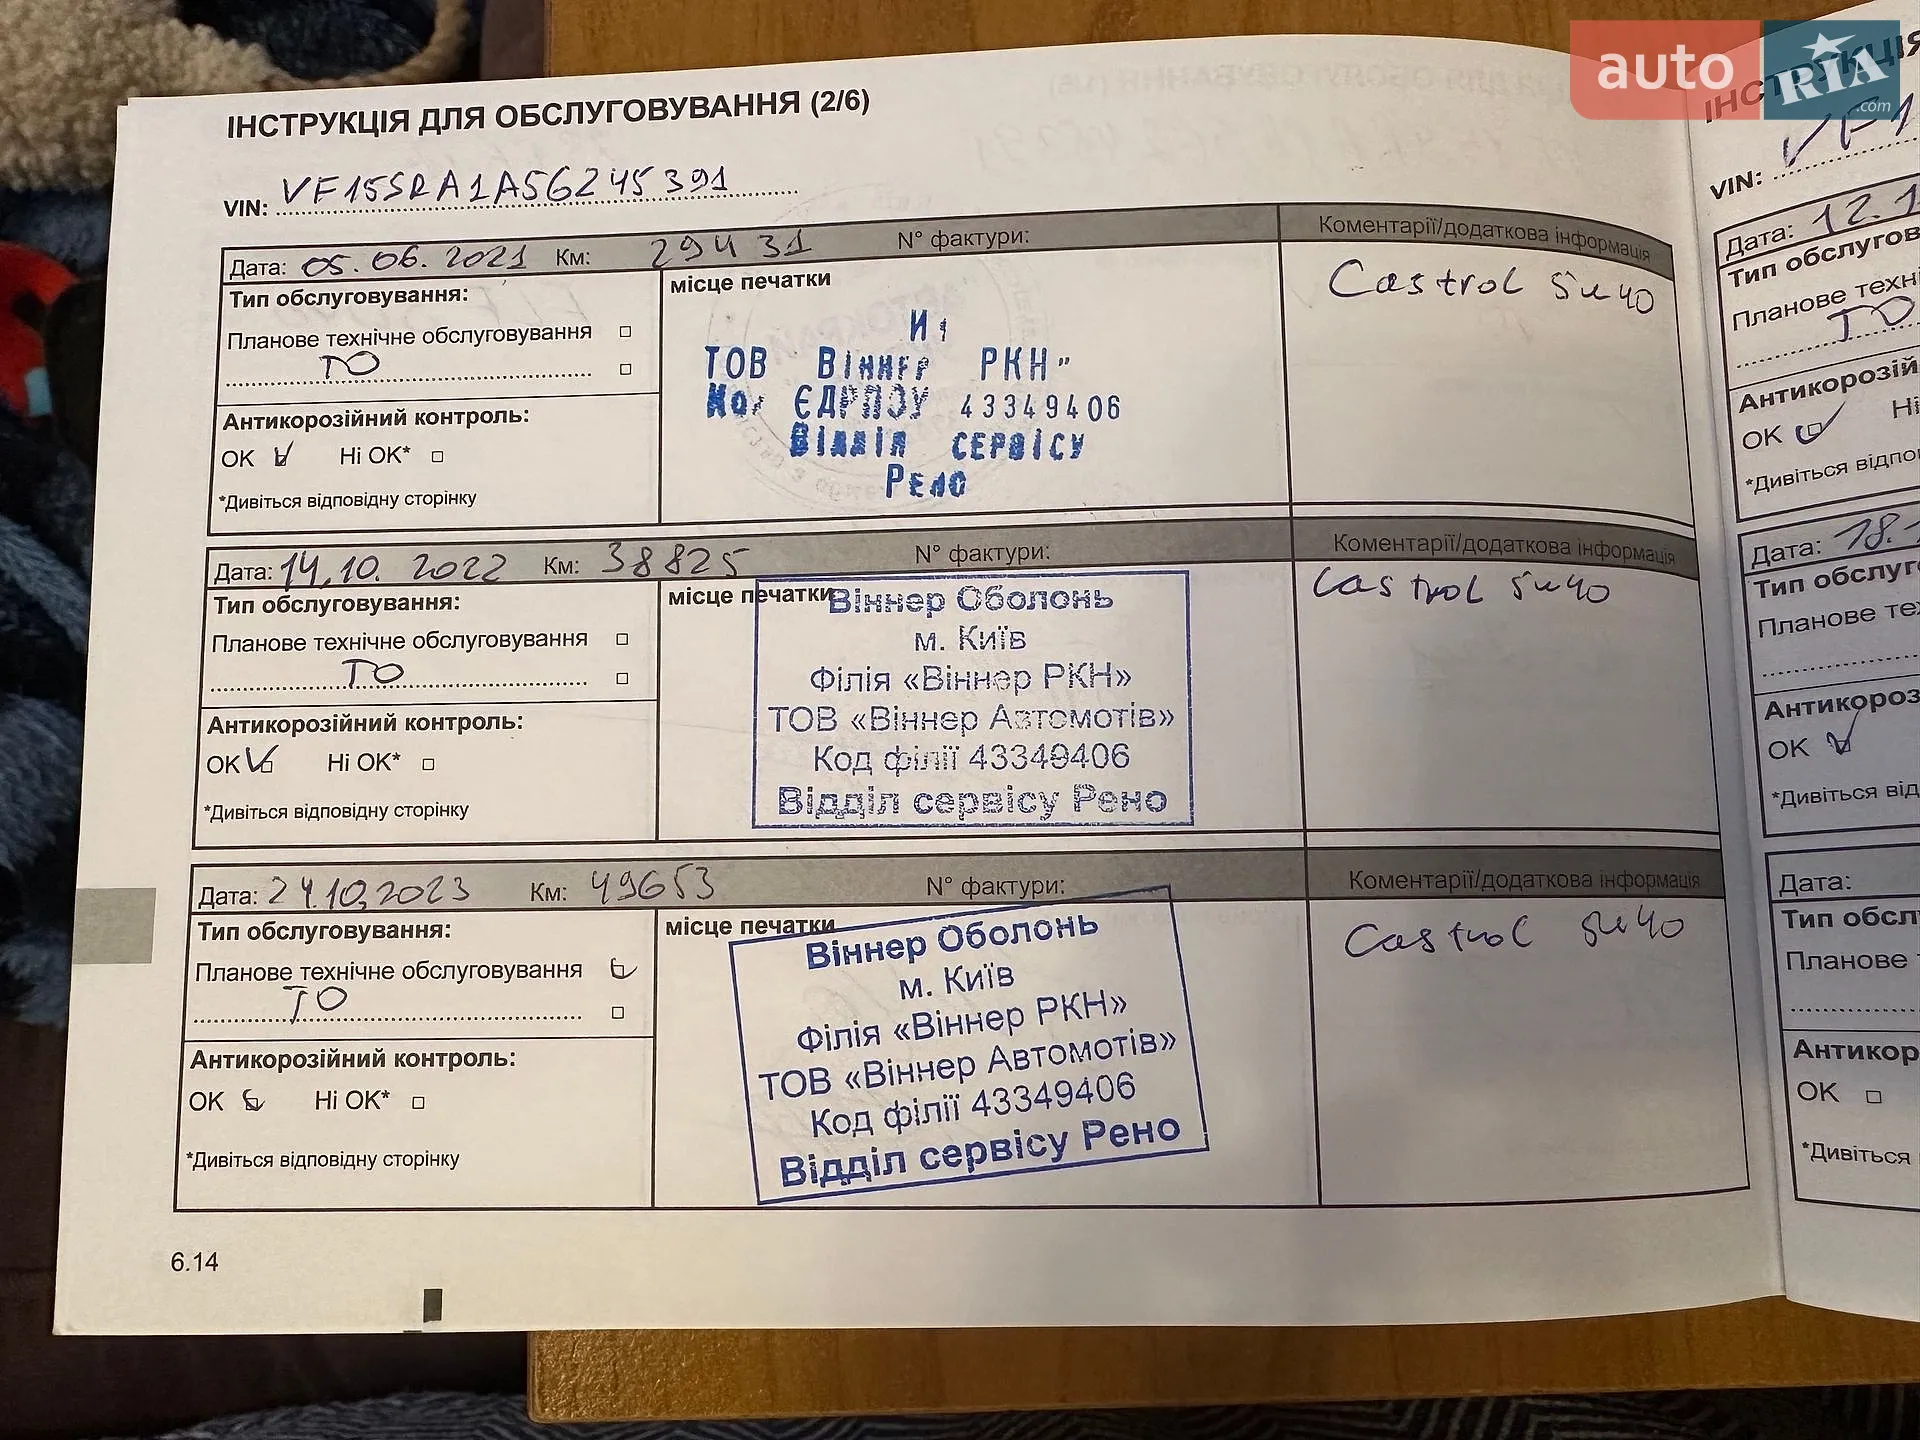 auto RIA .com
ІНСТРУКЦІЯ ДЛЯ ОБСЛУГОВУВАННЯ (2/6)
VIN: VF15SRA1A56245391
Дата: 05.06.2021 Км: 29431 N° фактури: Коментарії/додаткова інформація
Тип обслуговування:
місце печатки
Castrol 5w40
Планове технічне обслуговування
ТО
ТОВ Віннер РКН"
ЄДРПОУ 43349406
Відділ сервісу
Рено
Антикорозійний контроль:
OK Ні OK*
*Дивіться відповідну сторінку
Дата: 14.10.2022 Км: 38825 N° фактури: Коментарії/додаткова інформація
Тип обслуговування:
місце печатки
Castrol 5w40
Планове технічне обслуговування
ТО
Віннер Оболонь
м. Київ
Філія «Віннер РКН»
ТОВ «Віннер Автомотів»
Код філії 43349406
Відділ сервісу Рено
Антикорозійний контроль:
OK Ні OK*
*Дивіться відповідну сторінку
Дата: 24.10.2023 Км: 49653 N° фактури: Коментарії/додаткова інформація
Тип обслуговування:
місце печатки
Castrol 5w40
Планове технічне обслуговування
ТО
Віннер Оболонь
м. Київ
Філія «Віннер РКН»
ТОВ «Віннер Автомотів»
Код філії 43349406
Відділ сервісу Рено
Антикорозійний контроль:
OK Ні OK*
*Дивіться відповідну сторінку
6.14
VIN: VF1
Дата: 12.1
Тип обслугов
Планове техні
ТО
Антикорозій
OK Ні
*Дивіться відпо
Дата: 18.
Тип обслуго
Планове те
Антикороз
OK
*Дивіться від
Дата:
Тип обсл
Планове
Антикор
OK
*Дивіться